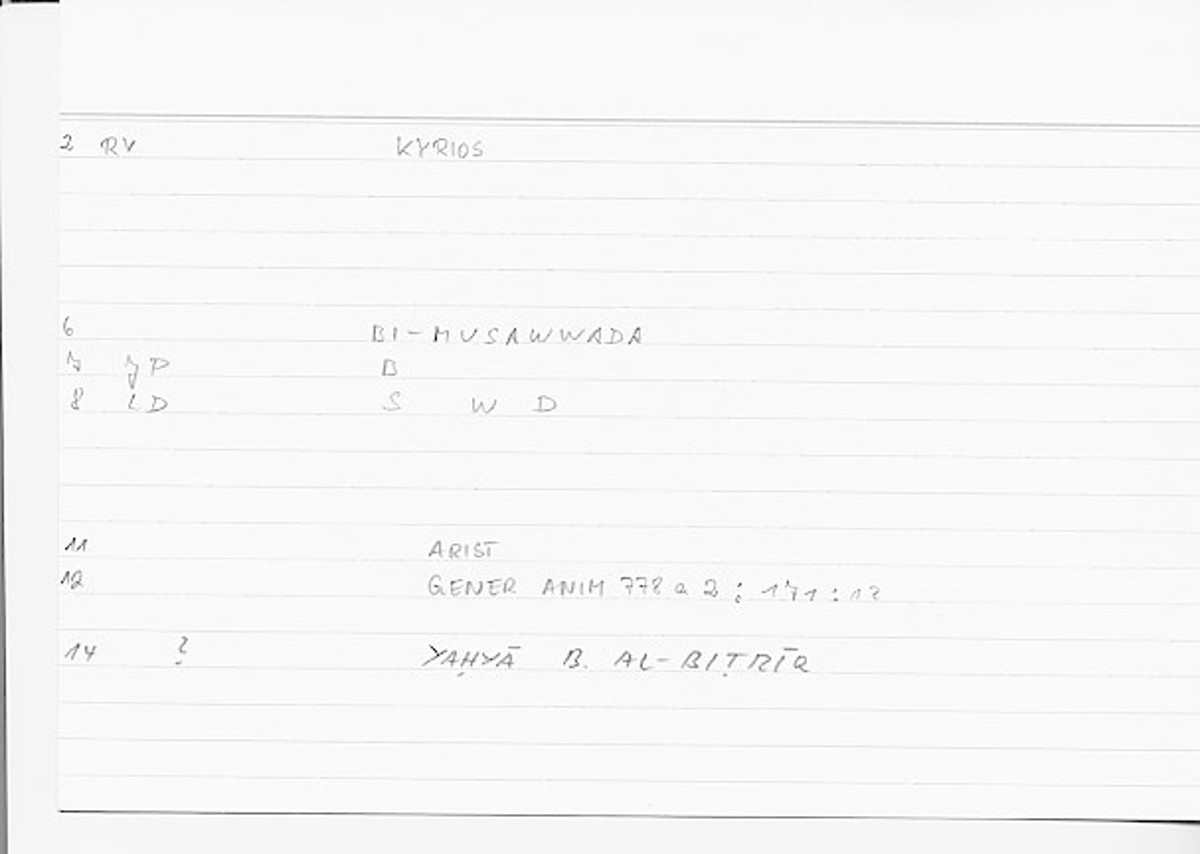 2 RV KYRIOS
6 BI-MUSAWWADA
7 JP B
8 LD S W D
11 ARIST
12 GENER ANIM 778 a 2 : 171 : 12
14 ? YAḤYĀ B. AL-BIṬRĪQ